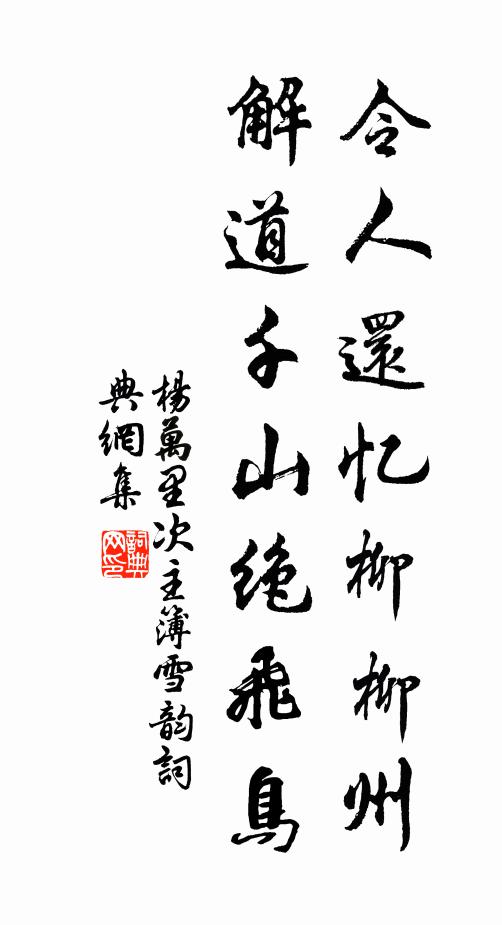 令人還忆柳柳州
解道千山绝飛鳥
楊萬里次主簿雪韵詞
典網集
詞典网印